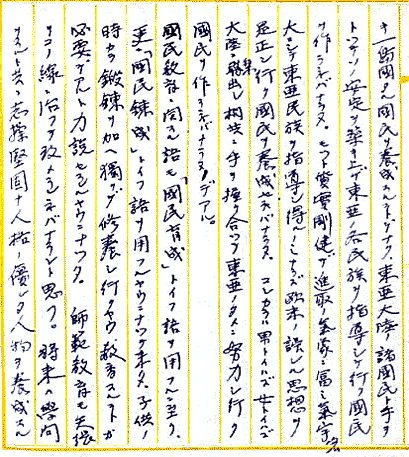 キ一等國タル國民ヲ養成スルトトモニ、東亜大陸ノ諸國民ト手ヲ
トツテソノ安定ヲ築キ上ゲ東亜ノ各民族ヲ指導シテ行ク國民
ヲ作ラネバナラヌ。モット質實剛健デ進取ノ氣象ニ富ミ氣宇
大ニシテ東亜民族ヲ指導シ得ルノミナラズ欧米ノ誤レル思想ヲ
是正シ行ク國民ヲ養成セネバナラヌ。コレカラハ男トイハズ女トイハズ
大陸ニ進出シ相共ニ手ヲ携ヘ合ツテ東亜ノタメニ努力シ行ク
國民ヲ作ラネバナラヌノデアル。
國民教育ニ関スル語モ「國民育成」トイフ語ヲ用フルニ至リ、
更ニ「國民錬成」トイフ語ヲ用フルヤウニナツテ来タ。子供ノ
時カラ鍛錬ヲ加ヘ獨リデ修養シ行クヤウ教育スルコトガ
必要デアルト力説セラルルヤウニナツタ。師範教育モ矢張
リコノ線ニ沿ツテ改メラレネバナラナイト思フ。将来ハ學問
ヲスルト共ニ志操堅固ナ人格ノ優レタ人物ヲ養成スル